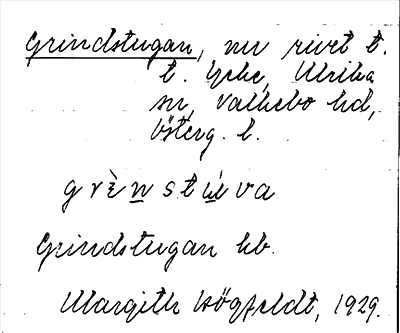 Grindstugan, nu rivet t.
t. Lycke, Ulrika
sn, Valkebo hd,
Österg. l.
grὲn̲stu̲̍va
Grindstugan hb.
Margith Högfeldt, 1929.